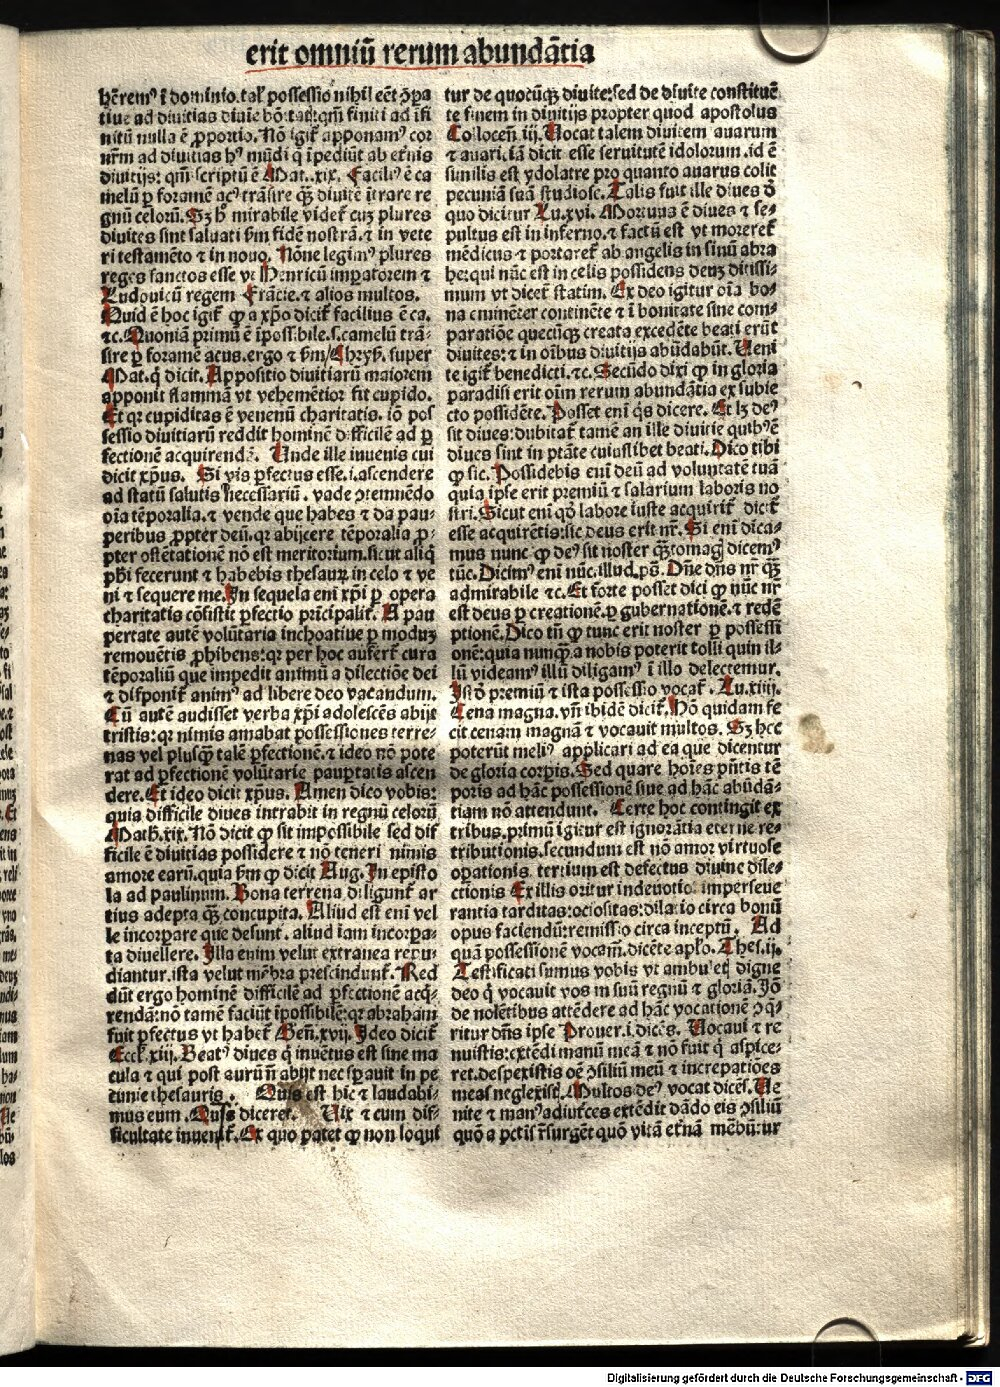 erit omniū rerum abundātia
hēremꝰ ī dominio. tal' possessio nihil eēt ꝯ̄pa
tiue ad diuitias diuine bōtatis: qm̄ finiti ad īfi
nitū nulla ē ꝓportio. Nō igit̄ apponamꝰ cor
nr̄m ad diuitias hꝰ mūdi q̄ īpediūt ab et̄nis
diuitijs: qm̄ scriptū ē Mat. xix. Facilꝰ ē ca
melū ꝑ foramē acꝰ trāsire qꝫ̄ diuitē ītrare re
gnū celorū. Sꝫ hͦ mirabile videt̄ cuꝫ plures
diuites sint saluati s̄m fidē nostrā. ⁊ in vete
ri testamēto ⁊ in nouo. Nōne legimꝰ plures
reges sanctos esse vt Henricū imꝑatorem ⁊
Ludouicū regem Frācie. ⁊ alios multos.
Quid ē hoc igit̄ ꝙ a xp̄o dicit̄ facilius ē ca.
⁊c. Quoniā primū ē īpossibile. s. camelū trā-
sire ꝑ foramē acus. ergo ⁊ s̄m Chrys̄. super
Mat. q̄ dicit. Appositio diuitiarū maiorem
apponit flammā vt vehemētior fit cupido.
Et qr cupiditas ē venenū charitatis. iō pos
sessio diuitiarū reddit hominē difficilē ad ꝑ
fectionē acquirendā. Unde ille iuuenis cui
dicit xp̄us. Si vis ꝑfectus esse. i. ascendere
ad statū salutis necessariū. vade ꝯtemnēdo
oīa tēporalia. ⁊ vende que habes ⁊ da pau-
peribus ꝓpter deū. qr abijcere tēporalia ꝓ-
pter ostētationē nō est meritorium. sicut aliq̄
ph̄i fecerunt ⁊ habebis thesaurꝫ in celo ⁊ ve
ni ⁊ sequere me. In sequela eni xp̄i ꝑ opera
charitatis cōsistit ꝑfectio prīcipalit̄. A pau
pertate autē volūtaria inchoatiue ꝑ moduꝫ
remouētis ꝓhibens: qr per hoc aufert̄ cura
tēporaliū que impedit animū a dilectiōe dei
⁊ disponit̄ animꝰ ad libere deo vacandum.
Cū autē audisset verba xp̄i adolescēs abijt
tristis: qr nimis amabat possessiones terre-
nas vel plusqꝫ̄ talē ꝑfectionē. ⁊ ideo nō pote
rat ad ꝑfectionē volūtarie pauꝑtatis ascen
dere. Et ideo dicit xp̄us. Amen dico vobis:
quia difficile diues intrabit in regnū celorū
Math. xix. Nō dicit ꝙ sit impossibile sed dif
ficile ē diuitias possidere ⁊ nō teneri nimis
amore earū. quia s̄m ꝙ dicit Aug. In episto
la ad paulinum. Bona terrena diligunt̄ ar
tius adepta qꝫ̄ concupita. Aliud est eni vel
le incorꝑare que desunt. aliud iam incorꝑa-
ta diuellere. Illa enim velut extranea repu-
diantur. ista velut mēbra prescindunt̄. Red
dūt ergo hominē difficilē ad ꝑfectionē acq̄-
rendā: nō tamē faciūt īpossibilē: qr abraham
fuit ꝑfectus vt habet̄ Geñ. xvij. Ideo dicit̄
Eccl'. xiij. Beatꝰ diues q̄ inuētus est sine ma
cula ⁊ qui post aurū nō abijt nec sperauit in pe
cunie thesauris. Quis est hic ⁊ laudabi-
mus eum. Quis diceret. Uix ⁊ cum dif-
ficultate inuenit̄. Ex quo patet ꝙ non loqui
tur de quocūqꝫ diuite: sed de diuite constituē
te finem in diuitijs propter quod apostolus
Colloceñ. iij. Uocat talem diuitem auarum
⁊ auari. iā dicit esse seruitutē idolorum. id ē
similis est ydolatre pro quanto auarus colit
pecuniā suā studiose. Talis fuit ille diues d̄
quo dicitur Lu. xvi. Mortuus ē diues ⁊ se-
pultus est in inferno. ⁊ factū est vt moreret̄
mēdicus ⁊ portaret̄ ab angelis in sinū abra
he: qui nūc est in celis possidens deuꝫ ditissi-
mum vt dicet̄ statim. Ex deo igitur oīa bo-
na eminēter continēte ⁊ ī bonitate sine com-
paratiōe quecūqꝫ creata excedēte beati erūt
diuites: ⁊ in oībus diuitijs abūdabūt. Ueni
te igit̄ benedicti. ⁊c. Secūdo dixi ꝙ in gloria
paradisi erit oīm rerum abundātia ex subie
cto possidēte. Posset eni q̄s dicere. Et lꝫ deꝰ
sit diues: dubitat̄ tamē an ille diuitie quibꝰ ē
diues sint in ptāte cuiuslibet beati. Dico tibi
ꝙ sic. Possidebis eni deū ad voluntatē tuā
quia ipse erit premiū ⁊ salarium laboris no
stri. Sicut eni qd̄ labore iuste acquirit̄ dicit̄
esse acquirētis: sic deus erit nr̄. Si eni dica-
mus nunc ꝙ deꝰ sit noster qꝫ̄tomagꝭ dicemꝰ
tūc. Dicimꝰ eni nūc illud. ps̄. Dn̄e dn̄s nr̄ qꝫ̄
admirabile ⁊c. Et forte posset dici ꝙ nūc nr̄
est deus ꝑ creationē. ꝑ gubernationē. ⁊ redē
ptionē. Dico tn̄ ꝙ tunc erit noster ꝑ possessi
onē: quia nunqꝫ̄ a nobis poterit tolli quin il-
lū videamꝰ illū diligamꝰ ī illo delectemur.
Istd̄ premiū ⁊ ista possessio vocat̄. Lu. xiiij.
Cena magna. vn̄ ibidē dicit̄. Hō quidam fe
cit cenam magnā ⁊ vocauit multos. Sꝫ hec
poterūt meliꝰ applicari ad ea que dicentur
de gloria corꝑis. Sed quare hoīes pn̄tis tē
poris ad hāc possessionē siue ad hāc abūdā-
tiam nō attendunt. Certe hoc contingit ex
tribus. primū igitur est ignorātia eterne re-
tributionis. secundum est nō amor virtuose
oꝑationis. tertium est defectus diuine dile-
ctionis Ex illis oritur indeuotio. imperseue
rantia tarditas: ociositas: dilatio circa bonū
opus faciendū: remissio circa inceptū. Ad
quā possessionē vocam̄. dicēte apl'o. Thes. ij.
Testificati sumus vobis vt ambuletꝭ digne
deo q̄ vocauit vos in suū regnū ⁊ gloriā. Iō
de nolētibus attēdere ad hāc vocationē ꝯq̄-
ritur dn̄s ipse Prouer. i. dicēs. Uocaui ⁊ re
nuistis: extēdi manū meā ⁊ nō fuit q̄ aspice-
ret. despexistis oē ꝯsiliū meū ⁊ increpatiōes
meas neglexistꝭ. Multos deꝰ vocat dicēs. Ue
nite ⁊ manꝰ adiutrices extēdit dādo eis ꝯsiliū
quō a pctīs r̄surgēt quō vitā et̄nā mēbūtur
Digitalisierung gefördert durch die Deutsche Forschungsgemeinschaft - DFG